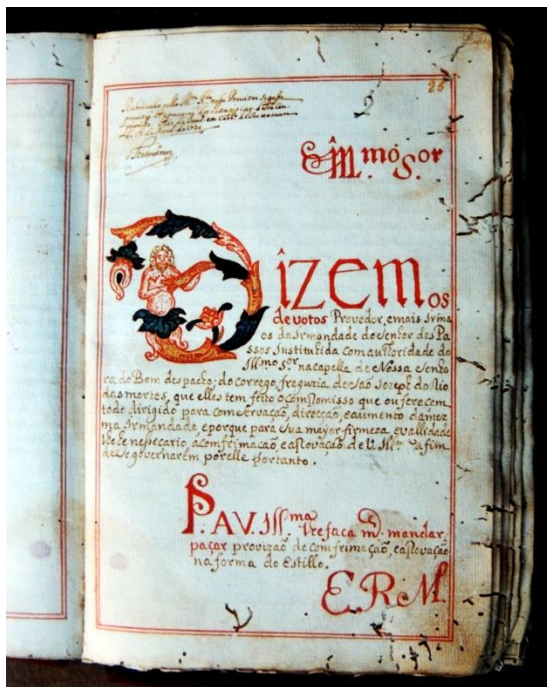 25
Ex.mo Ill.mo S.or
Dizemos
devotos Provedor, e mais Irma
os da Irmandade do Senhor dos Pa
ssos Instituida com authoridade do
Ill.mo S.or na capella de Nossa Senho
ra, do Bom despacho; do corrego, freguzia de São Jozeph do Rio
das mortes, que elles tem feito o compromisso que ouferecem
todo dirigido para comcervação, direcção, e aumento da mez
ma Irmandade, e porque para sua mayor firmeza e vallidade
he neçeçario, a comfirmação, e aprovação de V. Ill.ma a fim
de se governarem por elle portanto.
P. A V. Ill.ma lhe faça m.ce mandar
paçar provizão de comfrimação, e aprovação
na forma do Estillo.
E. R. M.